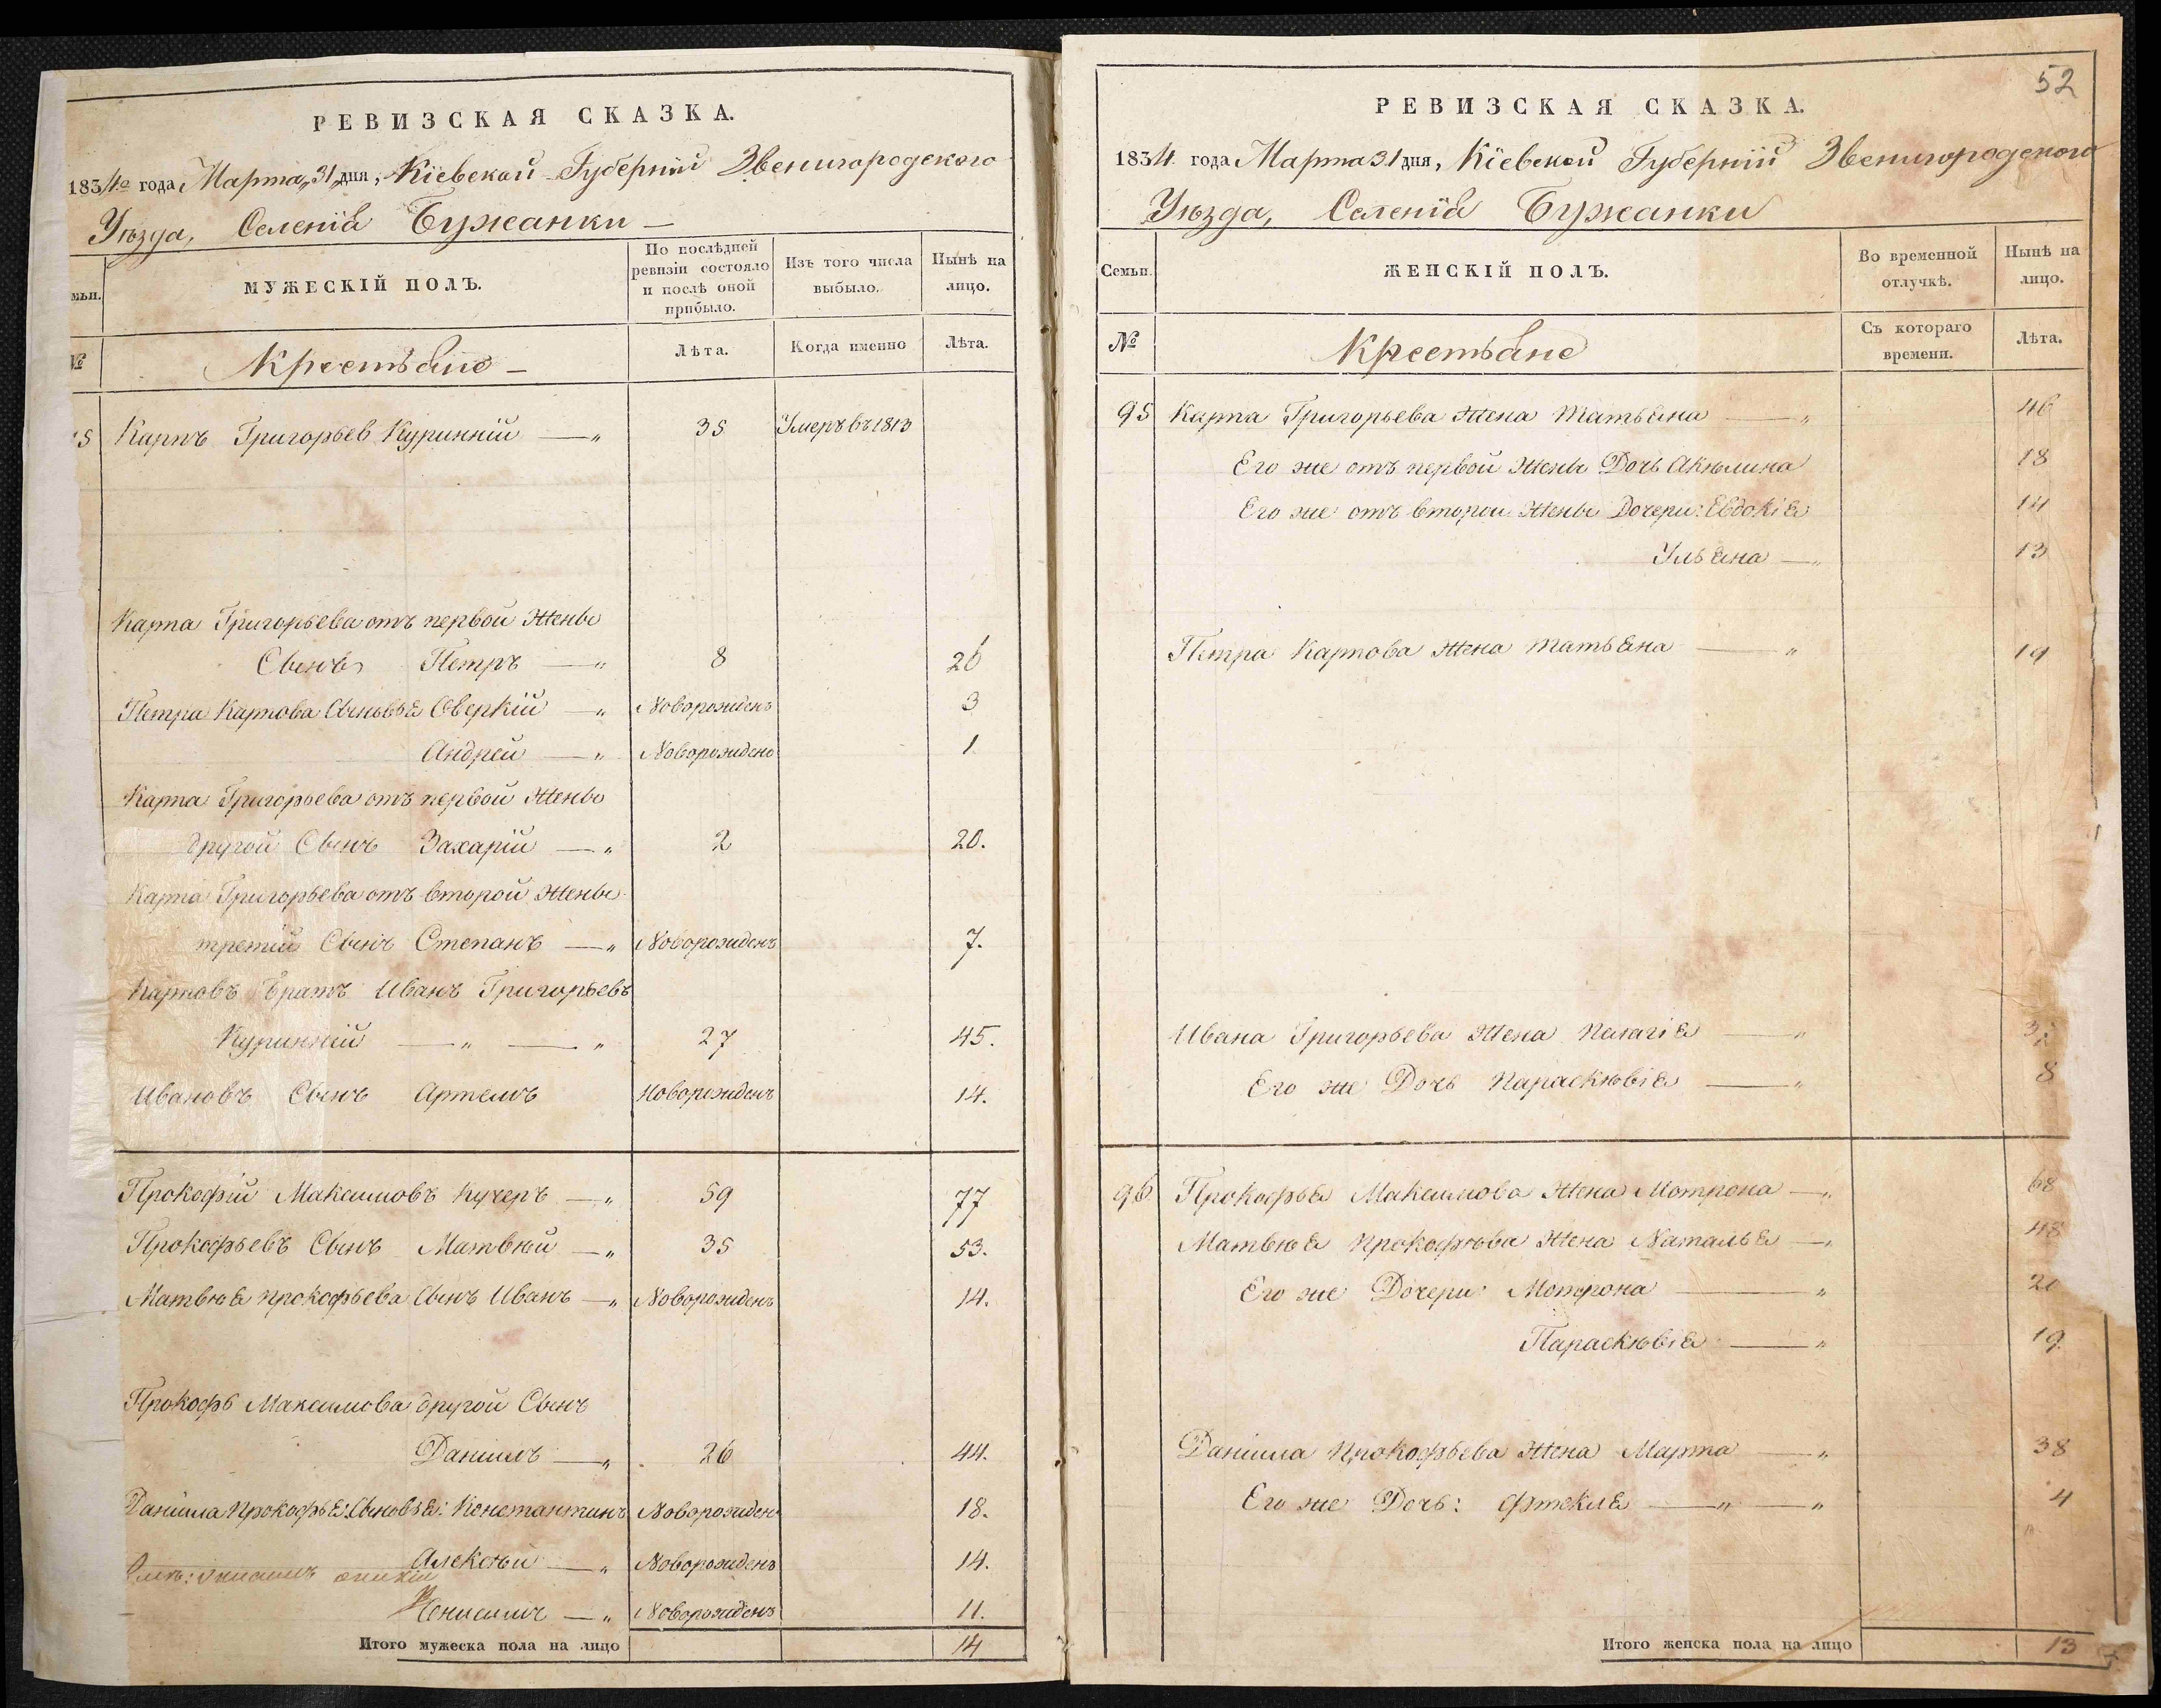 РЕВИЗСКАЯ СКАЗКА.
1834го года Марта „31„ дня, Кіевской Губерніи Звенигородского
Уѣзда, Селенія Бужанки —
мьи.
МУЖЕСКІЙ ПОЛЪ.
По послѣдней
ревизіи состояло
и послѣ оной
прибыло.
Изъ того числа
выбыло.
Нынѣ на
лицо.
№
Крестьяне —
Лѣта.
Когда именно
Лѣта.
5 Карпъ Григорьев Куринній — „ 35 Умеръ въ 1813
Карпа Григорьева отъ первой жены
Сынъ Петръ — „ 8 26
Петра Карпова Сыновья Оверкій — „ Новорожденъ 3
Андрей — „ Новорожденъ 1
Карпа Григорьева отъ первой жены
другой Сынъ Захарій — „ 2 20.
Карпа Григорьева отъ второй жены
третій Сынъ Степанъ — „ Новорожденъ 7.
Карповъ Братъ Иванъ Григорьевъ
Куринній — „ — „ 27 45.
Ивановъ Сынъ Артемъ Новорожденъ 14.
Прокофій Максимовъ Кучеръ — „ 59 77
Прокофьевъ Сынъ Матвѣй — „ 35 53.
Матвѣя Прокофьева Сынъ Иванъ — „ Новорожденъ 14.
Прокофь Максимова другой Сынъ
Даніилъ — „ 26 44.
Даніила Прокофья: Сыновья: Константинъ Новорожден 18.
Алексѣй — „ Новорожденъ 14.
— „ Новорожденъ 11.
Итого мужеска пола на лицо 14
52
РЕВИЗСКАЯ СКАЗКА.
1834 года Марта 31 дня, Кіевской Губерніи Звенигородского
Уѣзда, Селенія Бужанки
Семьи.
ЖЕНСКІЙ ПОЛЪ.
Во временной
отлучкѣ.
Нынѣ на
лицо.
№
Крестьяне
Съ котораго
времени.
Лѣта.
95 Карпа Григорьева жена Татьяна — „ 46
Его же отъ первой жены Дочь Акѣлина 18
Его же отъ второй жены Дочери: Евдокія 14
Ульяна — „ 13
Петра Карпова жена Татьяна — „ 19
Ивана Григорьева жена Палагія — „
Его же Дочь Параскѣвія — „ 8
96 Прокофья Максимова жена Мотрона — „ 68
Матвѣя Прокофѣва жена Наталья — „ 48
Его же Дочери: Мотрона — „ 20
Параскѣвія — „ 19.
Даніила Прокофьева жена Марта — „ 38
Его же Дочь: Фтекля — „ — „ 4
Итого женска пола на лицо 13